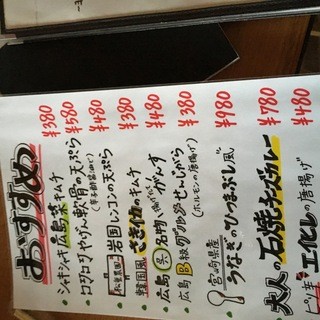 おすすめ
シャキシキ広島菜キムチ ¥380
コリコリやげん軟骨の天ぷら ¥580
岩国レンコンの天ぷら ¥480
韓国風 さきイカのキムチ ¥380
広島 呉 名物 揚げたて がんす ¥480
広島 B級グルメ せんじがら ¥380
(ホルモンの唐揚げ)
宮崎県産 うなぎのひつまぶし風 ¥980
大人の石焼チーズカレー ¥780
ピリ辛 エイヒレの唐揚げ ¥480